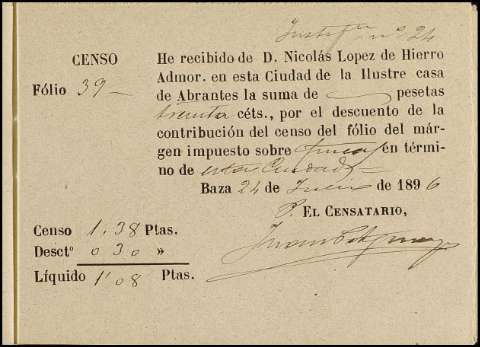 nº 24
CENSO
Fólio 39
He recibido de D. Nicolás Lopez de Hierro
Admor. en esta Ciudad de la Ilustre casa
de Abrantes la suma de — pesetas
treinta céts., por el descuento de la
contribución del censo del fólio del már-
gen impuesto sobre fincas en térmi-
no de esta Ciudad
Baza 24 de Junio de 1896
P. EL CENSATARIO,
Censo 1.38 Ptas.
Desctº 0 30 »
Líquido 1'08 Ptas.